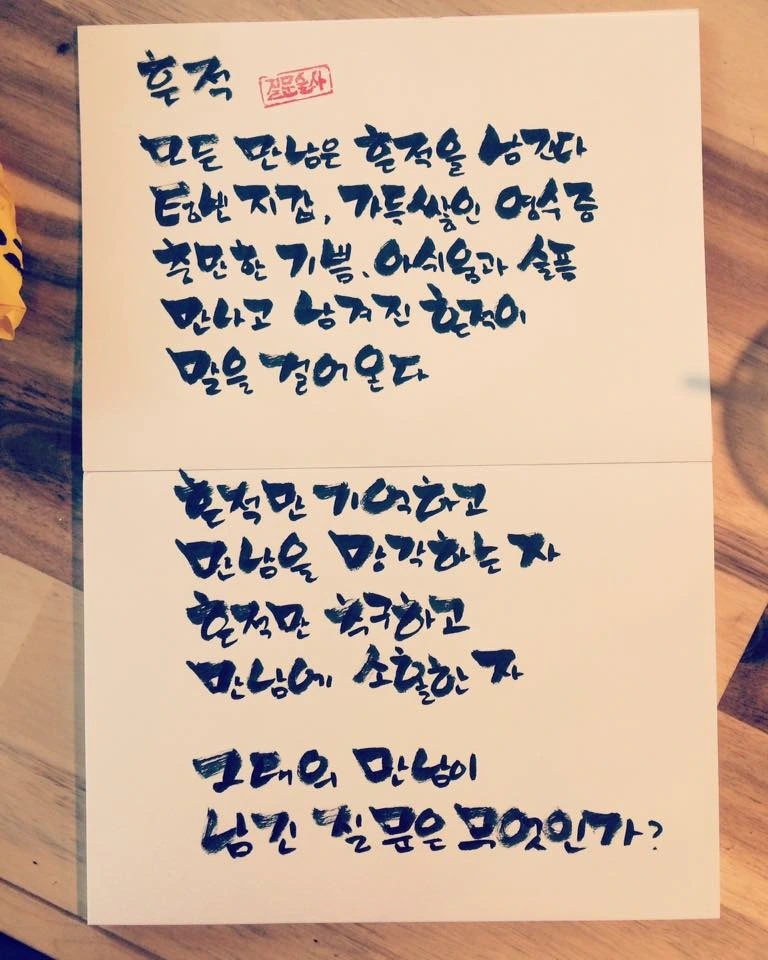 흔적 질문술사
모든 만남은 흔적을 남긴다
텅빈 지갑, 가득쌓인 영수증
충만한 기쁨, 아쉬움과 슬픔
만나고 남겨진 흔적이
말을 걸어온다
흔적만 기억하고
만남을 망각하는 자
흔적만 축구하고
만남에 소홀한 자
그대의 만남이
남긴 질문은 무엇인가?